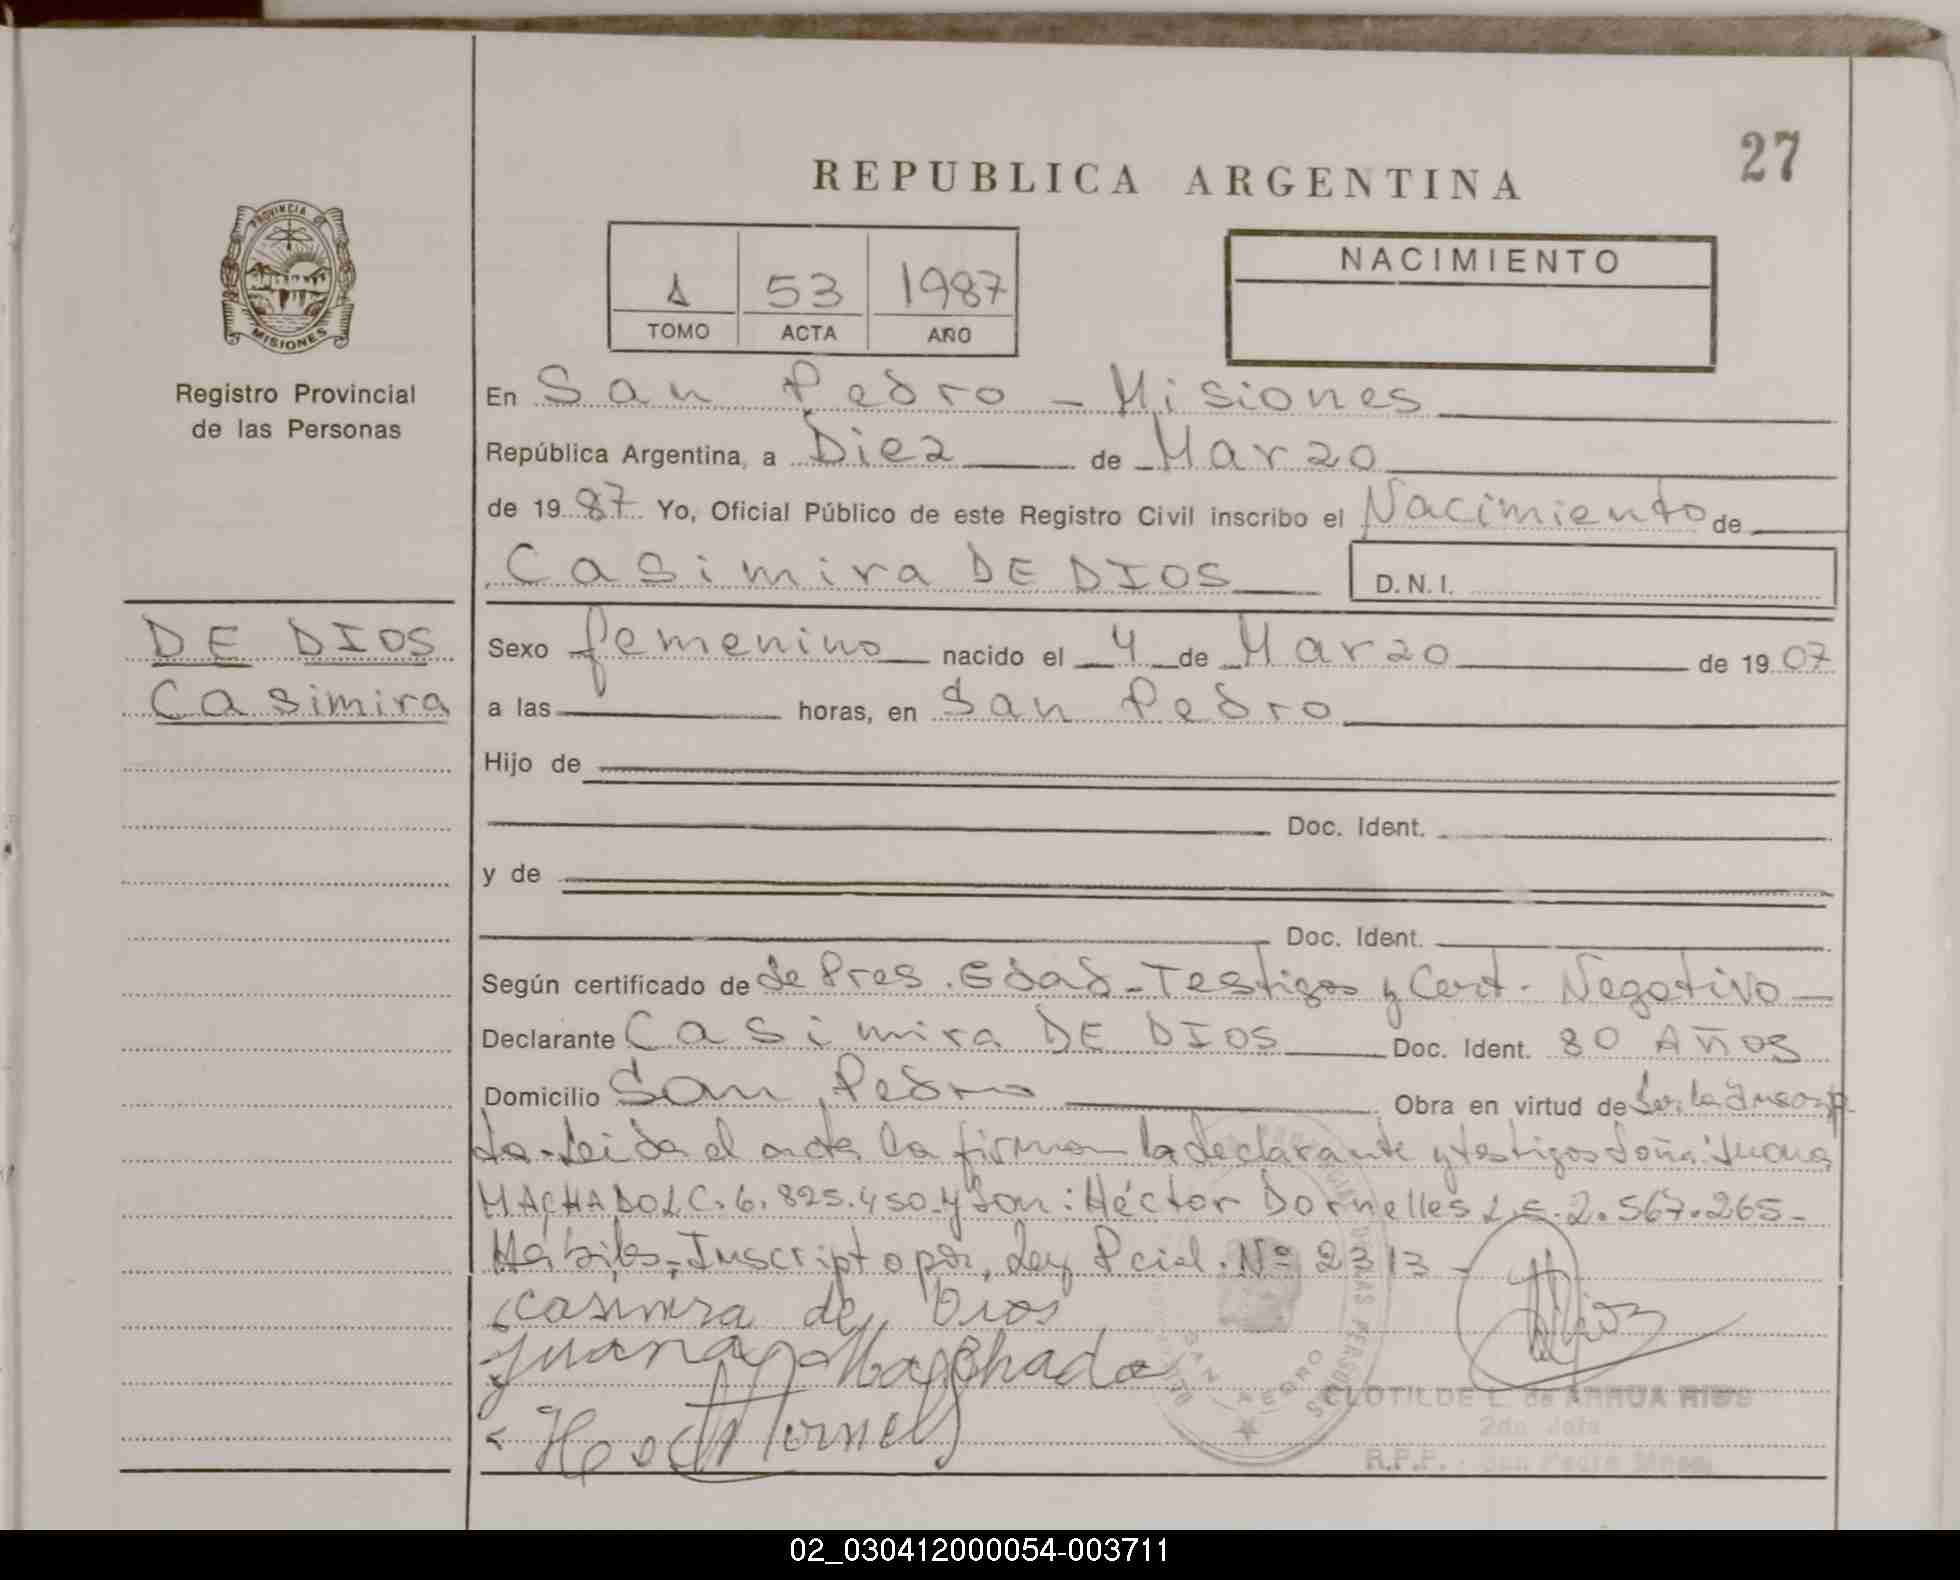 27
REPUBLICA ARGENTINA
PROVINCIA DE
MISIONES
Registro Provincial
de las Personas
1 53 1987
TOMO ACTA AÑO
NACIMIENTO
En San Pedro - Misiones
República Argentina, a Diez de Marzo
de 1987 Yo, Oficial Público de este Registro Civil inscribo el Nacimiento de
Casimira DE DIOS D.N.I.
DE DIOS
Casimira
Sexo femenino nacido el 4 de Marzo de 1907
a las horas, en San Pedro
Hijo de
Doc. Ident.
y de
Doc. Ident.
Según certificado de de Pres. Edad - Testigos y Cert. Negativo
Declarante Casimira DE DIOS Doc. Ident. 80 AÑOS
Domicilio San Pedro Obra en virtud de
Leida el acta la firman la declarante y testigos doña: Juana
MACHADO L.C. 6.825.450 y don: Héctor Dornelles L.E. 2.567.265-
Hábiles, Inscripto por, Ley Pcial. Nº 2313
casimira de Dios
Juana Machado
SAN PEDRO
CLOTILDE L. de ARRUA RIOS
2da Jefa
R.P.P. San Pedro Mnes.
02_030412000054-003711